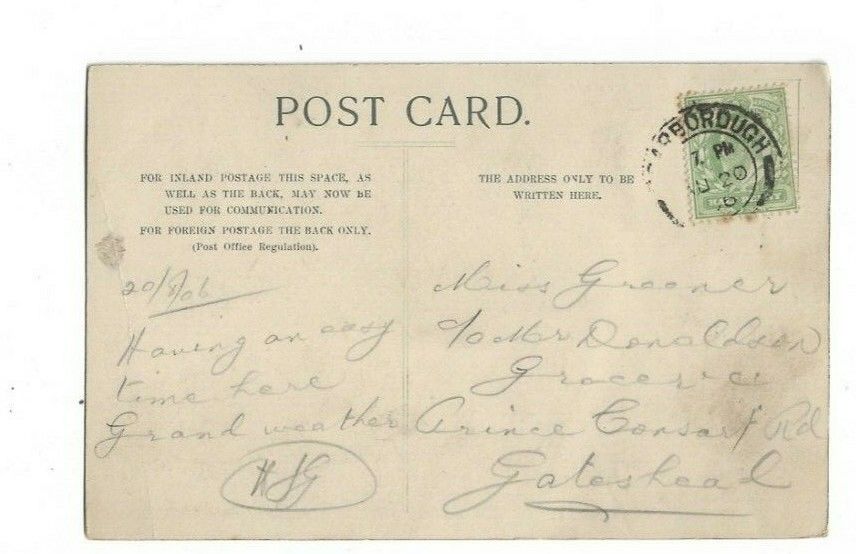 POST CARD.
FOR INLAND POSTAGE THIS SPACE, AS
WELL AS THE BACK, MAY NOW BE
USED FOR COMMUNICATION.
FOR FOREIGN POSTAGE THE BACK ONLY.
(Post Office Regulation).
THE ADDRESS ONLY TO BE
WRITTEN HERE.
ARBOROUGH
7. PM
20
20/8/06
Having an easy
time here
Grand weather
HSG
Miss Greener
c/o Mr Donaldson
Prince Consort Rd
Gateshead